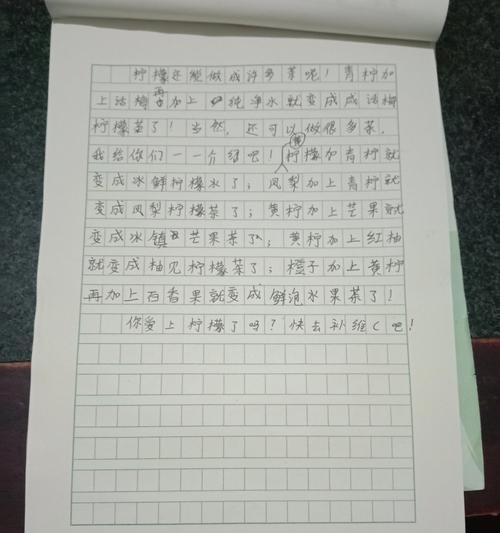 柠檬还能做成许多茶呢！青柠加
上话梅再加上纯净水就变成成话梅
柠檬茶了！当然，还可以做很多茶，
我给你们一一介绍吧！柠檬加青柠就
变成冰鲜柠檬水了；凤梨加上青柠就
变成凤梨柠檬茶了；黄柠加上芒果就
变成冰镇芒果茶了；黄柠加上红柚
就变成柚见柠檬茶了；橙子加上黄柠
再加上百香果就变成鲜泡水果茶了！
你爱上柠檬了吗？快去补维C吧！